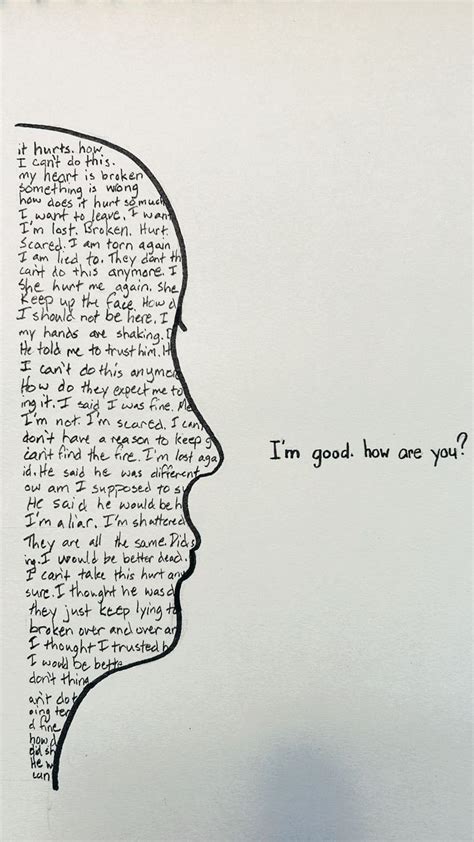 it hurts. how
I can't do this.
my heart is broken
something is wrong
how does it hurt so much
I want to leave. I wan
I'm lost. Broken. Hurt.
Scared. I am torn again
I am lied to. They dont th
cant do this anymore. I
She hurt me again. She
Keep up the face. How d
I should not be here. I
my hands are shaking.
He told me to trust him. H
I can't do this anymor
How do they expect me to
ing it. I said I was fine. Me
I'm not. I'm scared. I can
don't have a reason to keep g
can't find the fire. I'm lost aga
id. He said he was different
ow am I supposed to su
He said he would be h
I'm a liar. I'm shattered
They are all the same. Did s
ing. I would be better dead.
I can't take this hurt any
sure. I thought he was d
they just keep lying to
broken over and over ar
I thought I trusted h
I would be bette
don't thing
an't do t
oing ter
d fine
how d
did sh
He w
can
I'm good. how are you?